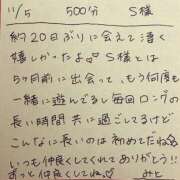 11/5 500分 S様
約20日ぶりに会えて凄く
嬉しかったよ♡ S様とは
5ヶ月前に出会って、もう何度も
一緒に遊んでるし毎回ロングの
長い時間共に過ごしてるけど
こんなに長いのは初めてだね
いつも仲良くしてくれてありがとう!!
ずっと仲良くしてね♡ みと